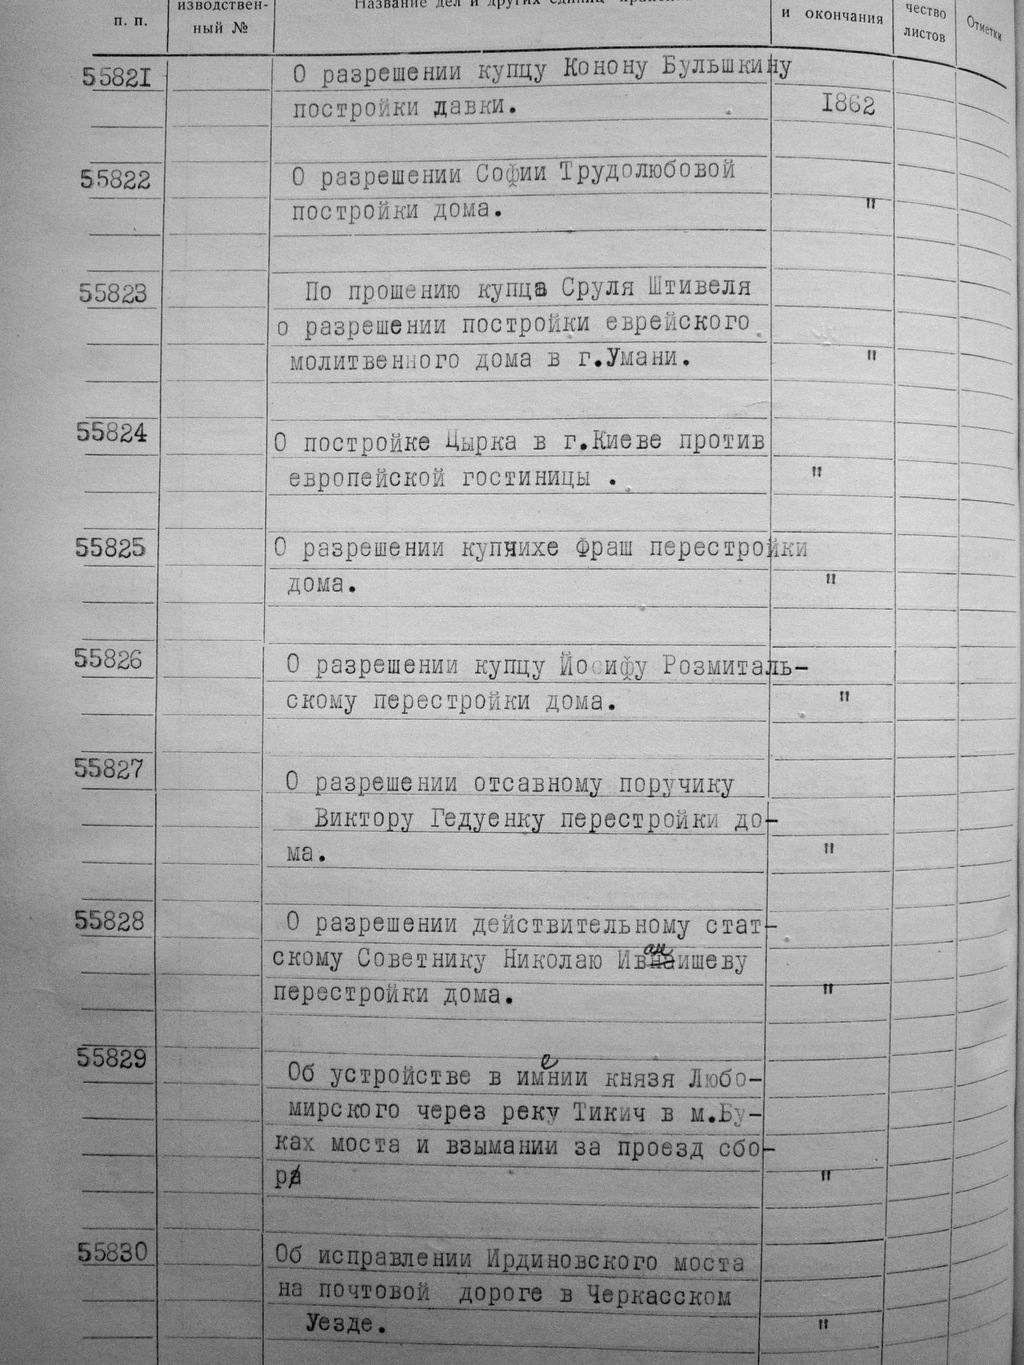 п. п.
изводствен-
ный №
Название дел и других единиц хранения
и окончания
чество
листов
Отметки
55821 О разрешении купцу Конону Булышкину
постройки давки. 1862
55822 О разрешении Софии Трудолюбовой
постройки дома. "
55823 По прошению купца Сруля Штивеля
о разрешении постройки еврейского
молитвенного дома в г.Умани. "
55824 О постройке Цырка в г.Киеве против
европейской гостиницы . "
55825 О разрешении купчихе Фраш перестройки
дома. "
55826 О разрешении купцу Йосифу Розмиталь-
скому перестройки дома. "
55827 О разрешении отсавному поручику
Виктору Гедуенку перестройки до-
ма. "
55828 О разрешении действительному стат-
скому Советнику Николаю Иванишеву
перестройки дома. "
55829 Об устройстве в имении князя Любо-
мирского через реку Тикич в м.Бу-
ках моста и взымании за проезд сбо-
ра "
55830 Об исправлении Ирдиновского моста
на почтовой дороге в Черкасском
Уезде. "